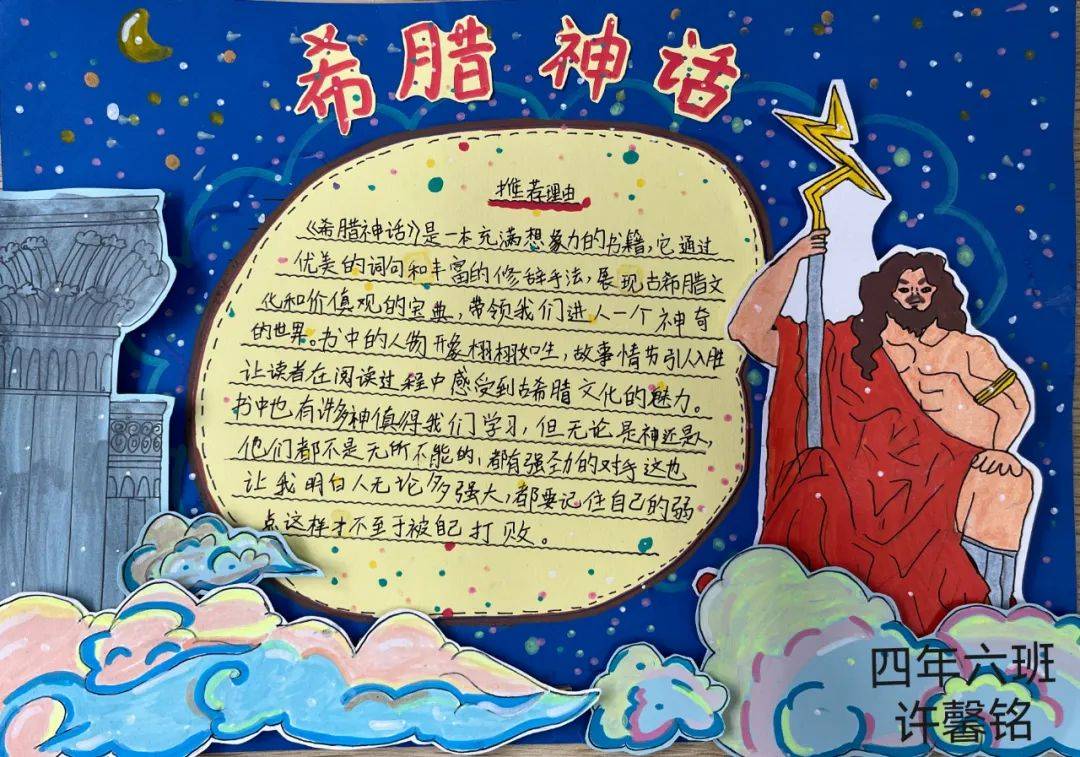 希腊神话
推荐理由
《希腊神话》是一本充满想象力的书籍,它通过
优美的词句和丰富的修辞手法,展现古希腊文
化和价值观的宝典,带领我们进入一个神奇
的世界。书中的人物形象栩栩如生,故事情节引人入胜
让读者在阅读过程中感受到古希腊文化的魅力。
书中也有许多神值得我们学习,但无论是神还是人,
他们都不是无所不能的,都有强劲的对手这也
让我明白人无论多强大,都要记住自己的弱
点这样才不至于被自己打败。
四年六班
许馨铭